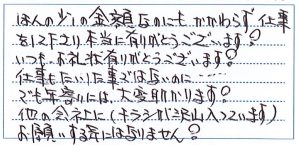 ほんの少しの金額なのにもかかわらず仕事
をして下さり本当に有りがとうございます?
いつもお礼状有りがとうございます?
仕事もたいした事ではないのに‥‥‥
でも年寄りには、大変助かります?
他の会社に(チラシが沢山入っています)
お願いする気にはなりません?